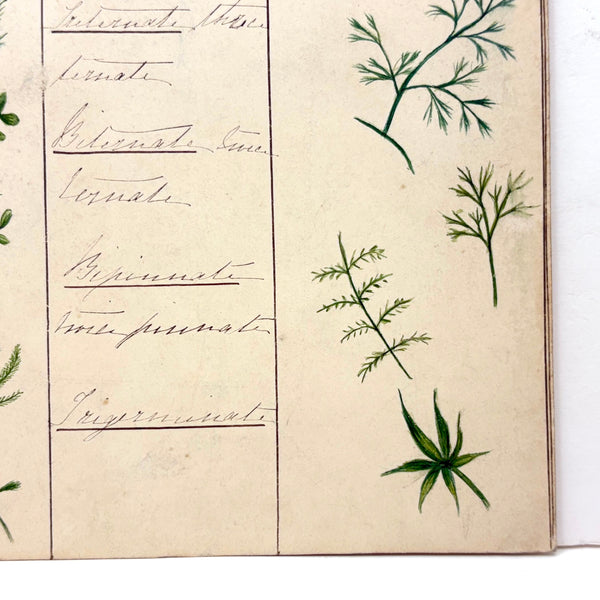 Triternate three
ternate
Biternate twice
ternate
Bipinnate
twice pinnate
Trigerminate